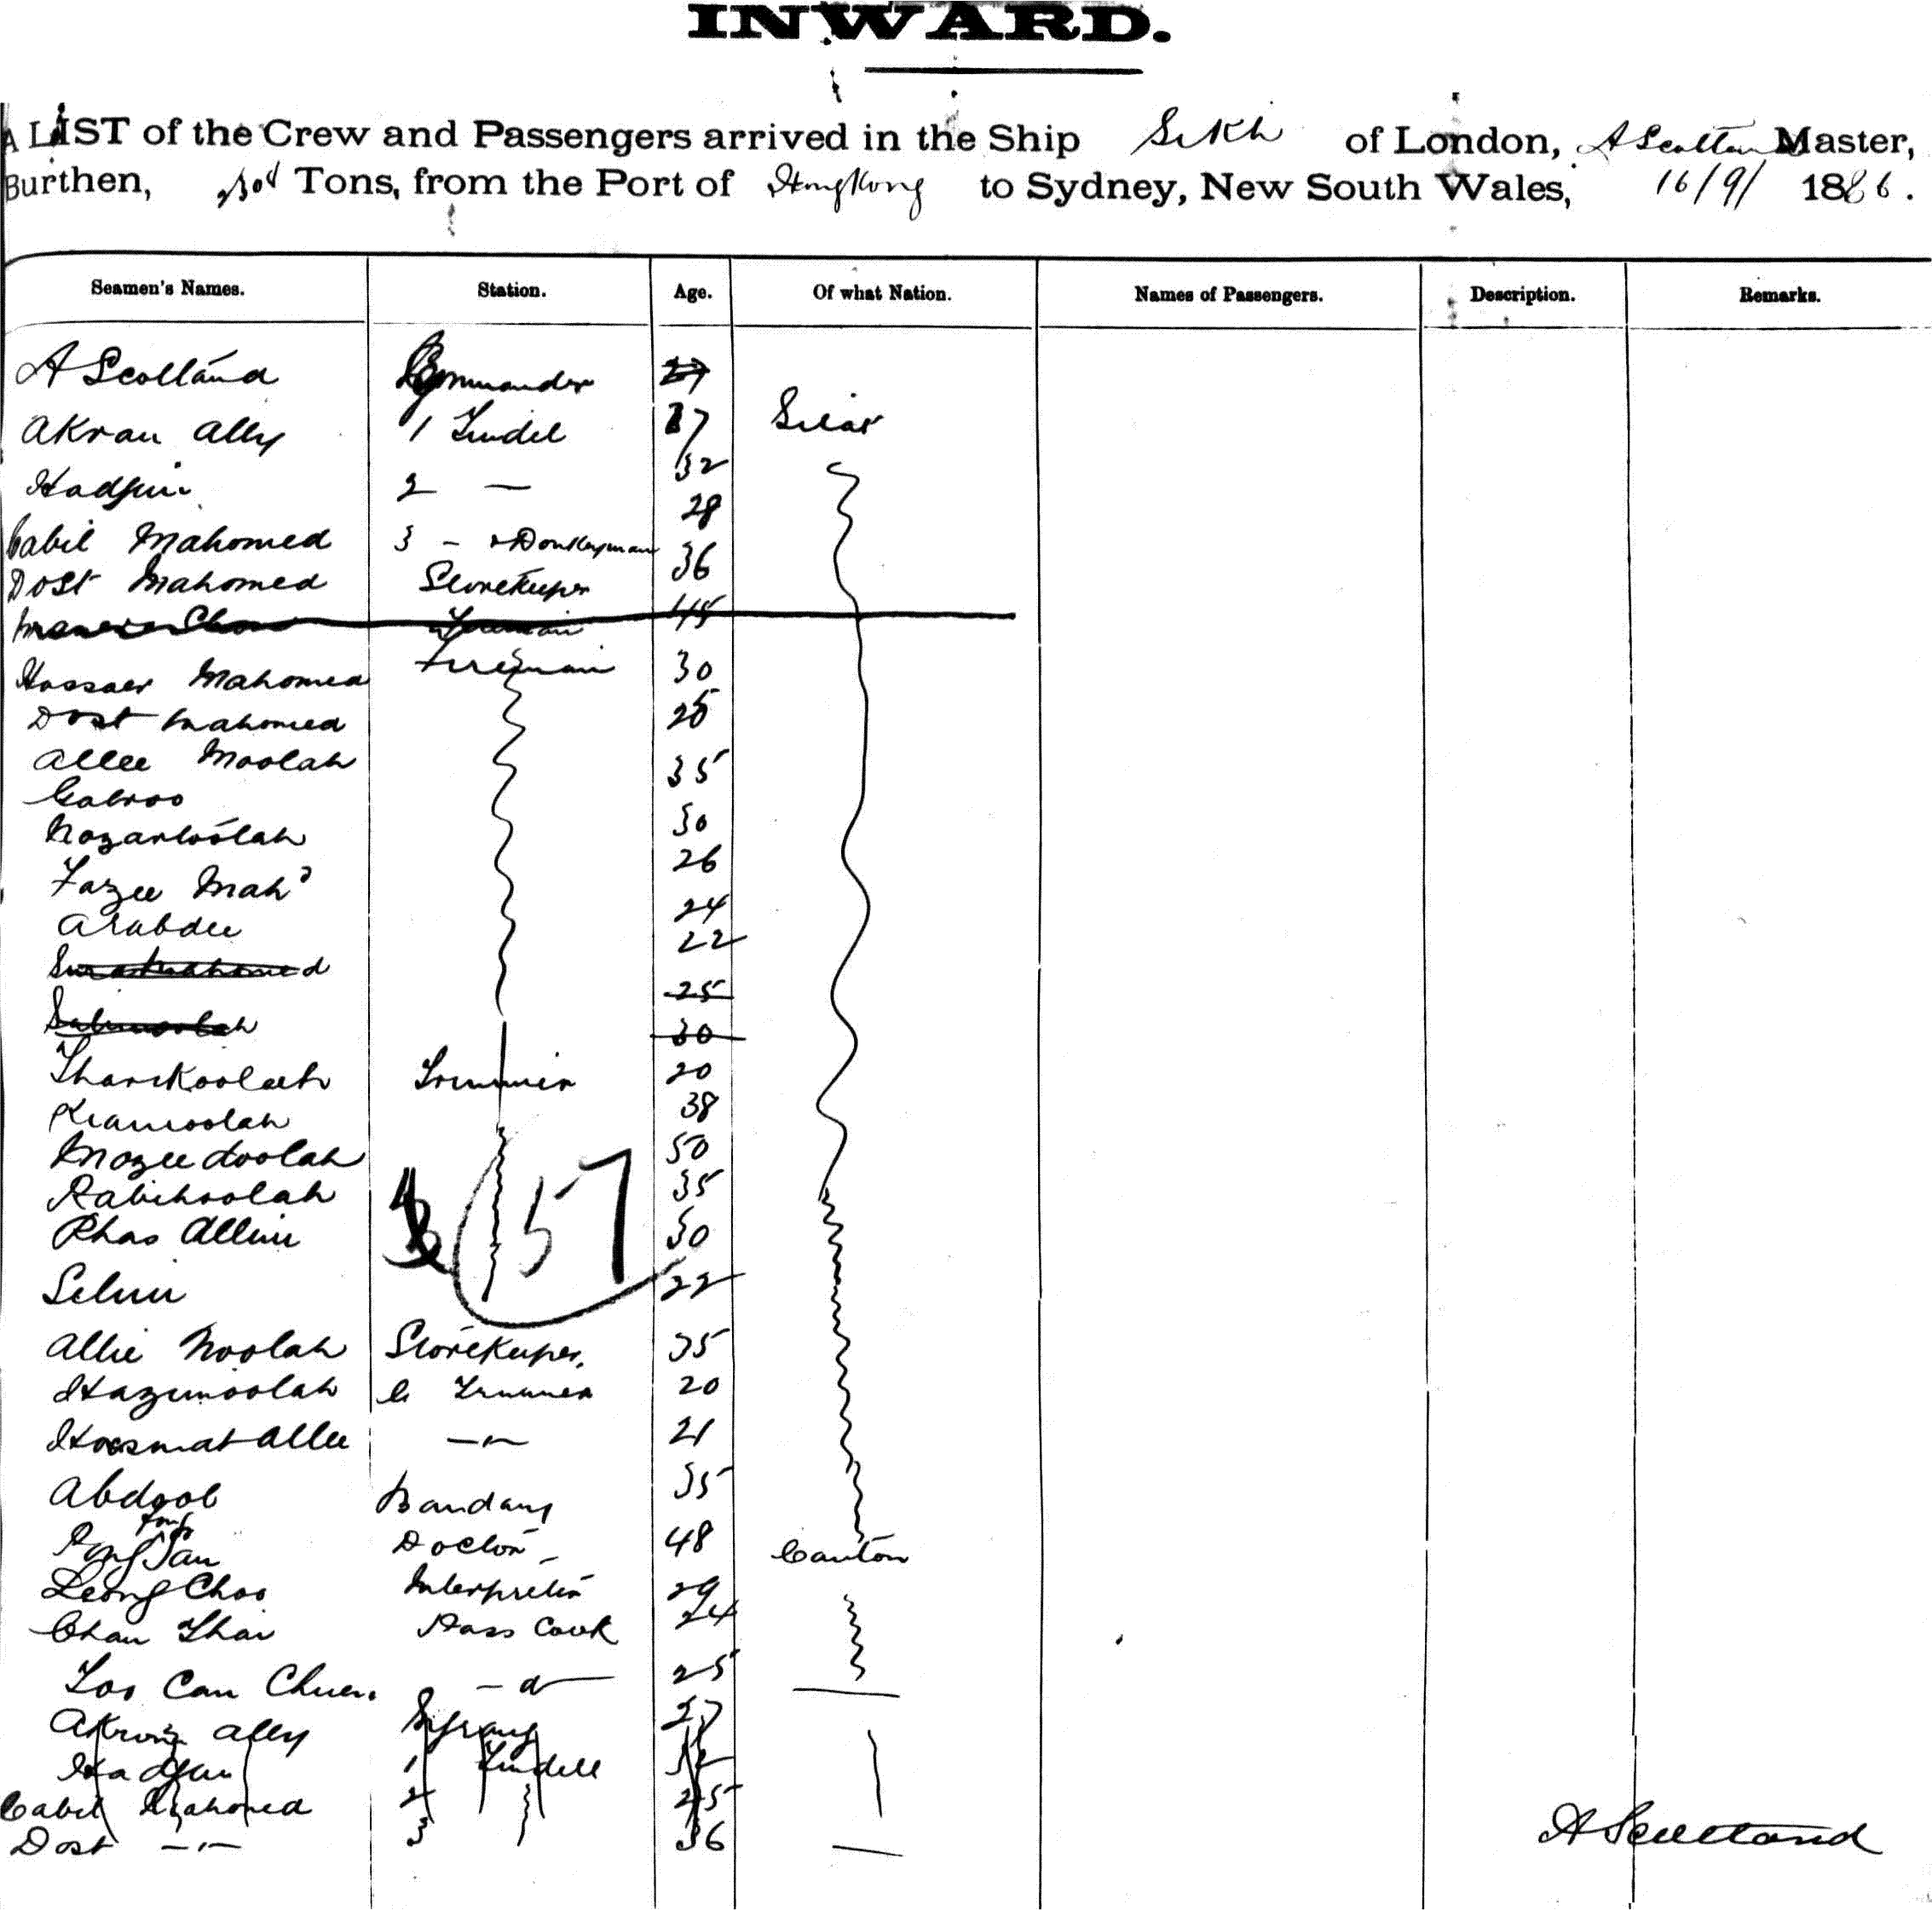 INWARD.
A LIST of the Crew and Passengers arrived in the Ship Sikh of London, A Scotland Master,
Burthen, Tons, from the Port of HongKong to Sydney, New South Wales, 16/9/ 1886.
Seamen's Names. Station. Age. Of what Nation. Names of Passengers. Description. Remarks.
A Scotland Commander
Akran Ally 1 Tindel 37
Hadjin 2 — 32
Cabil Mahomed 3 - + Donkeyman 28
Dost Mahomed Storekeeper 36
Fireman 45
Hassan Mahomed Fireman 30
Dost Mahomed 25
Allee Moolah 35
Gabroo 30
26
Fazee Mahd 24
Arabdee 22
25
30
Tharikoolah Trimmer 20
Kramoolah 38
Mozeedoolah 50
Rabihoolah 35
Phas Allim 30
Selim 22
157
Allie Noolah Storekeeper, 35
Hazimoolah C Trimmer 20
Hossmat Allee —"— 21
Abdool Bandary 35
Doctor 48 Canton
Leong Choo Interpreter 29
Chan Thai Pass Cook 24
Loo Can Chuen — d — 25
Akrom Ally Syrang 37
Hadjin 1 Tindell 32
Cabil Mahomed 2 25
Dost —"— 3 36
A Scotland